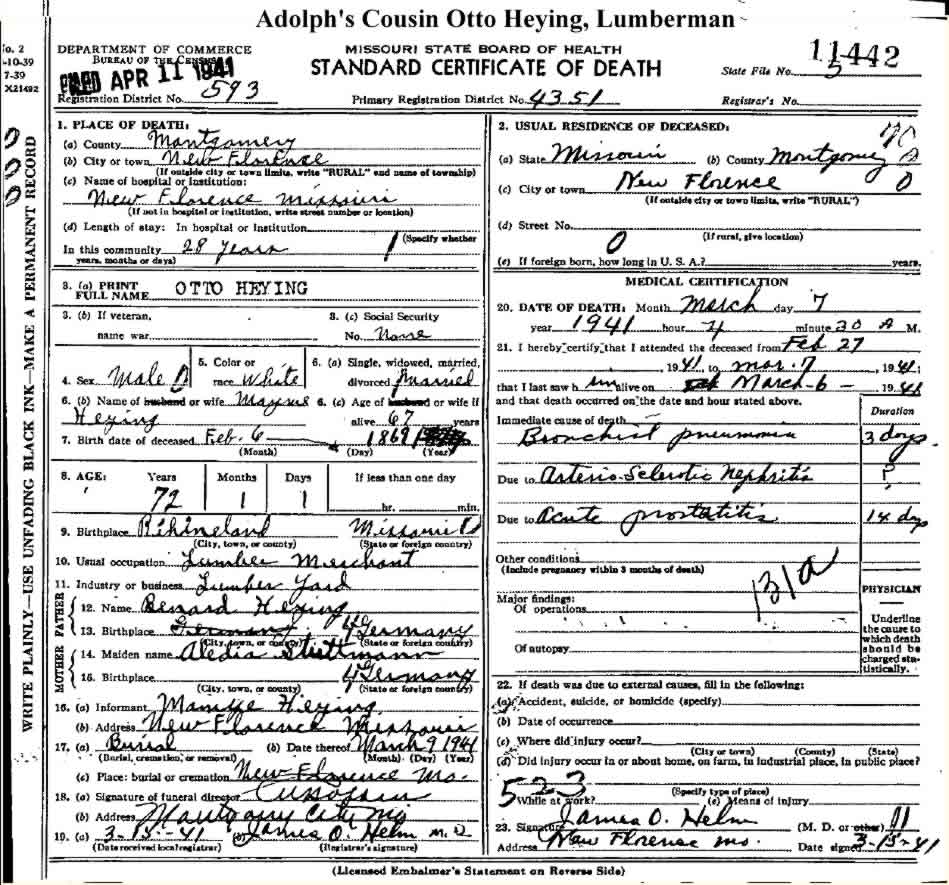 Adolph's Cousin Otto Heying, Lumberman
No. 2
-10-39
7-39
X21492
DEPARTMENT OF COMMERCE
BUREAU OF THE CENSUS
FILED APR 11 1941
Registration District No. 593
MISSOURI STATE BOARD OF HEALTH
STANDARD CERTIFICATE OF DEATH
Primary Registration District No. 4351
11442
State File No.
5
Registrar's No.
WRITE PLAINLY—USE UNFADING BLACK INK—MAKE A PERMANENT RECORD
1. PLACE OF DEATH:
(a) County Montgomery
(b) City or town New Florence
(If outside city or town limits, write "RURAL" and name of township)
(c) Name of hospital or institution:
New Florence Missouri
(If not in hospital or institution, write street number or location)
(d) Length of stay: In hospital or Institution
(Specify whether
In this community 28 Years
years, months or days)
3. (a) PRINT
FULL NAME OTTO HEYING
3. (b) If veteran,
name war
3. (c) Social Security
No. None
4. Sex Male
5. Color or
race White
6. (a) Single, widowed, married,
divorced Married
6. (b) Name of husband or wife
Heying
6. (c) Age of husband or wife if
alive 67 years
7. Birth date of deceased Feb. 6 1869
(Month) (Day) (Year)
8. AGE: Years Months Days If less than one day
72 1 1 hr. min.
9. Birthplace Rihineland Missouri
(City, town, or county) (State or foreign country)
10. Usual occupation Lumber Merchant
11. Industry or business Lumber Yard
FATHER
12. Name Benard Heying
13. Birthplace Germany Germany
(City, town, or county) (State or foreign country)
MOTHER
14. Maiden name
15. Birthplace Germany
(City, town, or county) (State or foreign country)
16. (a) Informant Heying
(b) Address New Florence Missouri
17. (a) Burial (b) Date thereof March 9 1941
(Burial, cremation, or removal) (Month) (Day) (Year)
(c) Place: burial or cremation New Florence Mo.
18. (a) Signature of funeral director
(b) Address Montgomery City Mo
19. (a) 3-15-41 (b) James O. Helm M.D
(Date received local registrar) (Registrar's signature)
2. USUAL RESIDENCE OF DECEASED:
(a) State Missouri (b) County Montgomery
(c) City or town New Florence 0
(If outside city or town limits, write "RURAL")
(d) Street No.
0 (If rural, give location)
(e) If foreign born, how long in U. S. A.? years.
MEDICAL CERTIFICATION
20. DATE OF DEATH: Month March day 7
year 1941 hour 4 minute 30 A M.
21. I hereby certify that I attended the deceased from Feb 27
, 1941 to Mar. 7, 1941;
that I last saw him alive on March-6-, 1941
and that death occurred on the date and hour stated above.
Duration
Immediate cause of death
Bronchial pneumonia 3 days
Due to Arterio-Sclerotic Nephritis ?
Due to Acute prostatitis 14 dys
Other conditions
(Include pregnancy within 3 months of death)
131a
PHYSICIAN
Major findings:
Of operations
Of autopsy
Underline
the cause to
which death
should be
charged sta-
tistically.
22. If death was due to external causes, fill in the following:
(a) Accident, suicide, or homicide (specify)
(b) Date of occurrence
(c) Where did injury occur?
(City or town) (County) (State)
(d) Did injury occur in or about home, on farm, in industrial place, in public place?
523
(Specify type of place)
While at work? (e) Means of injury
23. Signature James O. Helm (M. D. or other)
Address New Florence Mo. Date signed 3-15-41
(Licensed Embalmer's Statement on Reverse Side)